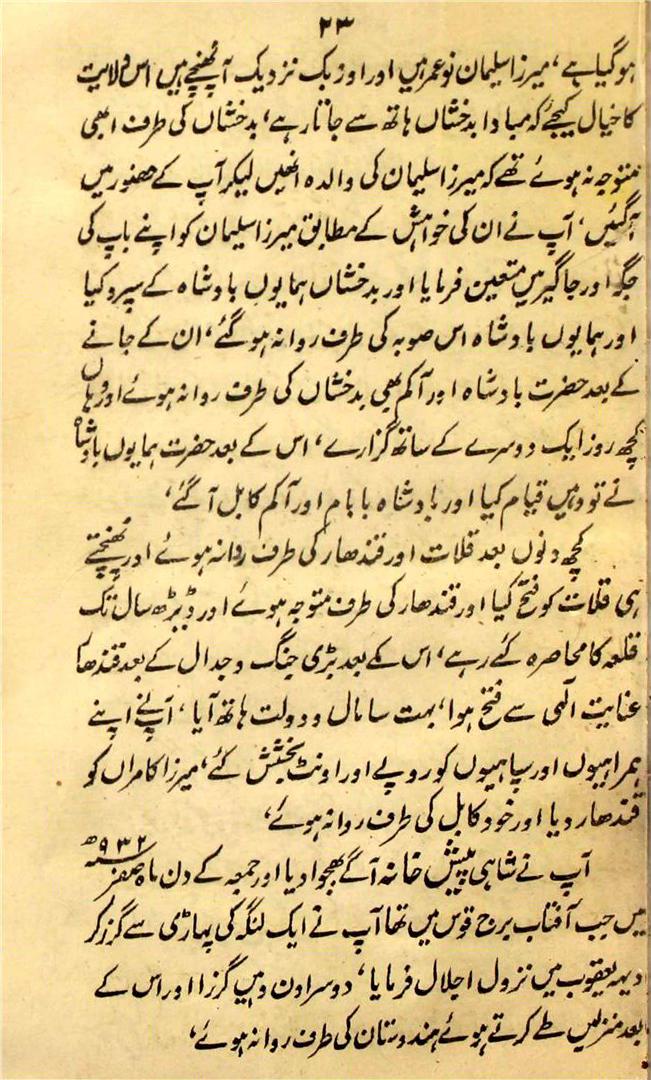 ۲۳
ہوگیا ہے، میرزا سلیمان نوعمر ہیں اور اوزبک نزدیک آ پہنچے ہیں اس ولایت
کا خیال کیجئے کہ مبادا بدخشاں ہاتھ سے جاتا رہے، بدخشاں کی طرف ابھی
متوجہ نہ ہوئے تھے کہ میرزا سلیمان کی والدہ انھیں لیکر آپ کے حضور میں
آگئیں، آپ نے ان کی خواہش کے مطابق میرزا سلیمان کو اپنے باپ کی
جگہ اور جاگیر میں متعین فرمایا اور بدخشاں ہمایوں بادشاہ کے سپرد کیا
اور ہمایوں بادشاہ اس صوبہ کی طرف روانہ ہوگئے، ان کے جانے
کے بعد حضرت بادشاہ اور آکم بھی بدخشاں کی طرف روانہ ہوئے اور وہاں
کچھ روز ایک دوسرے کے ساتھ گزارے، اس کے بعد حضرت ہمایوں بادشاہ
نے تو وہیں قیام کیا اور بادشاہ بابام اور آکم کابل آگئے،
کچھ دنوں بعد قلات اور قندھار کی طرف روانہ ہوئے اور پہنچتے
ہی قلات کو فتح کیا اور قندھار کی طرف متوجہ ہوئے اور ڈیڑھ سال تک
قلعہ کا محاصرہ کئے رہے، اس کے بعد بڑی جنگ وجدال کے بعد قندھار
عنایت الٰہی سے فتح ہوا، بہت سا مال و دولت ہاتھ آیا، آپ نے اپنے
ہمراہیوں اور سپاہیوں کو روپے اور اونٹ بخشش کئے، میرزا کامراں کو
قندھار دیا اور خود کابل کی طرف روانہ ہوئے،
آپ نے شاہی پیش خانہ آگے بھجوا دیا اور جمعہ کے دن ماہ صفر ۹۳۲ھ
میں جب آفتاب برج قوس میں تھا آپ نے ایک لنگہ کی پہاڑی سے گزر کر
دیہہ یعقوب میں نزول اجلال فرمایا، دوسرا دن وہیں گزرا اور اس کے
بعد منزلیں طے کرتے ہوئے ہندوستان کی طرف روانہ ہوئے،